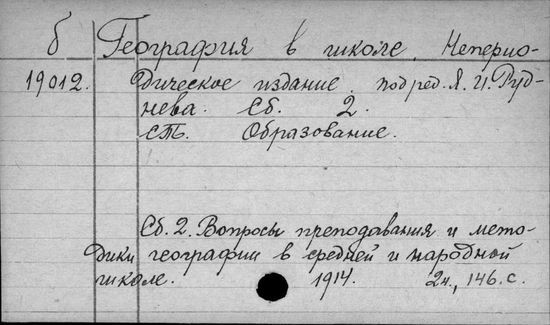 б География в школе. Неперио-
19012. дическое издание. под ред. Я. И. Руд-
нева. Сб. 2.
СПб. Образование.
Сб. 2. Вопросы преподавания и мето-
дики географии в средней и народной
школе. 1914. 2н., 146 с.